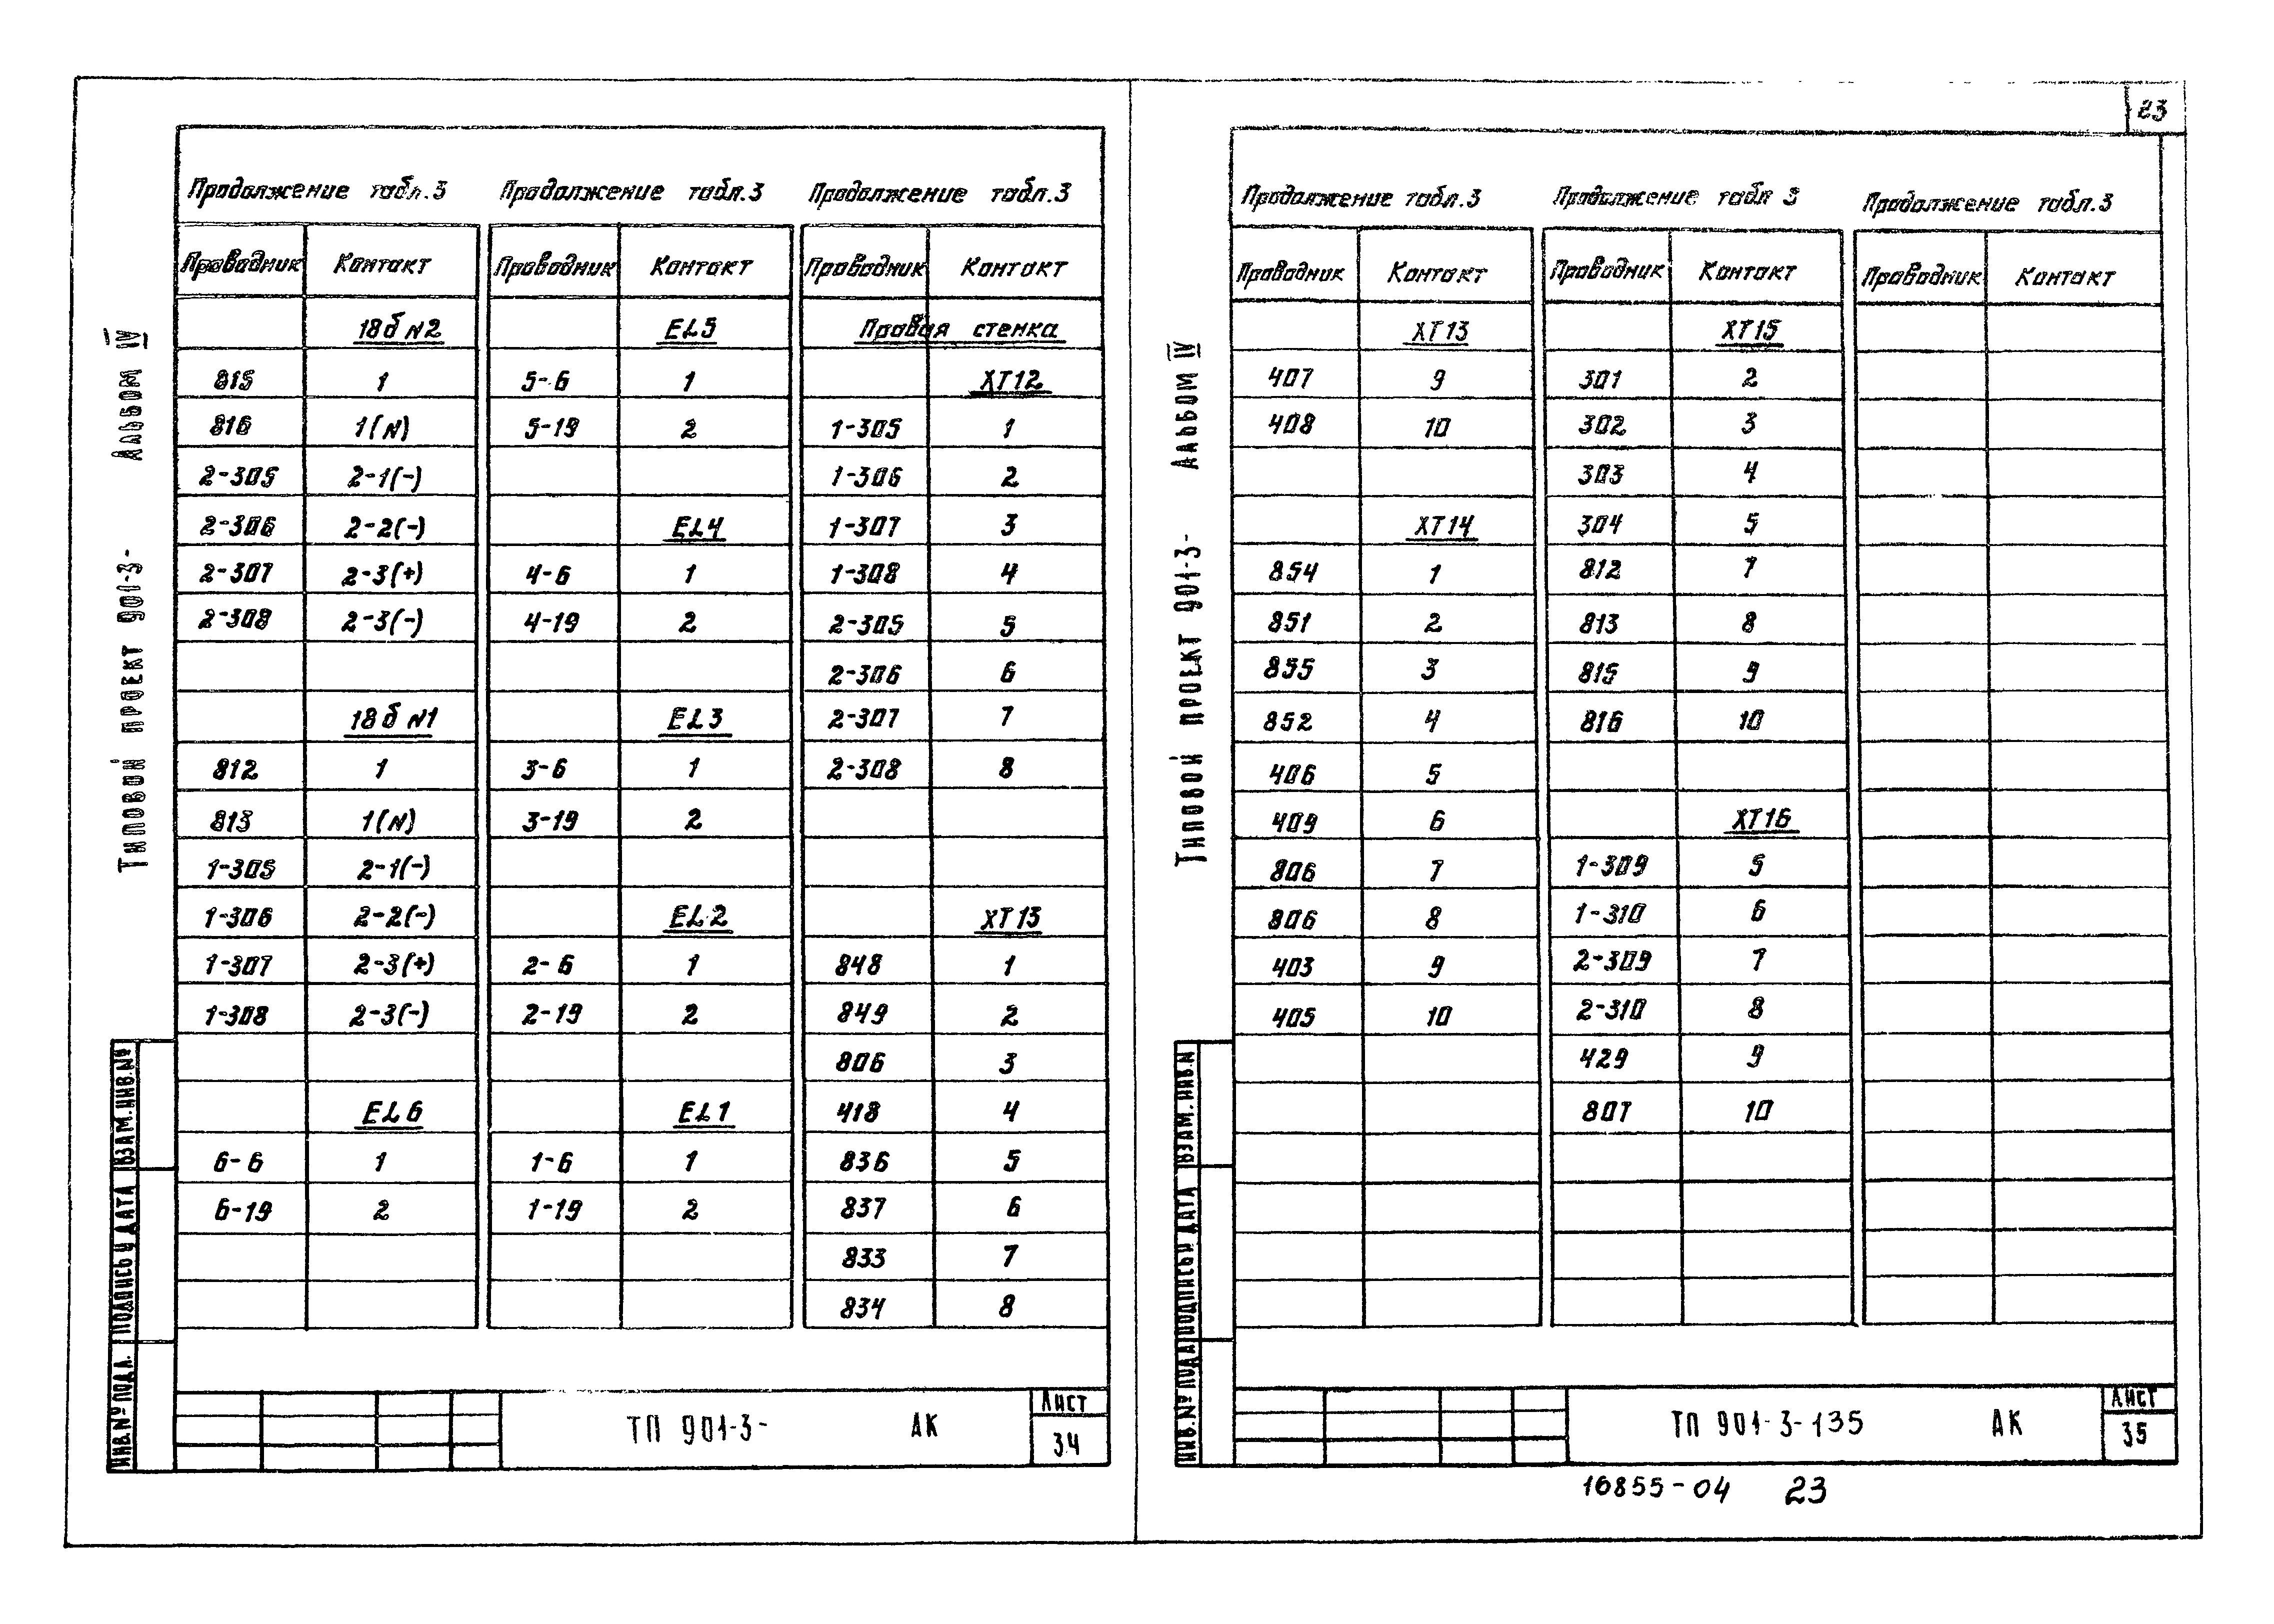 23
Альбом IV
Типовой проект 901-3-
Продолжение табл.3
Проводник Контакт
18б N2
815 1
816 1(N)
2-305 2-1(-)
2-306 2-2(-)
2-307 2-3(+)
2-308 2-3(-)
18б N1
812 1
813 1(N)
1-305 2-1(-)
1-306 2-2(-)
1-307 2-3(+)
1-308 2-3(-)
EL6
6-6 1
6-19 2
Продолжение табл.3
Проводник Контакт
EL5
5-6 1
5-19 2
EL4
4-6 1
4-19 2
EL3
3-6 1
3-19 2
EL2
2-6 1
2-19 2
EL1
1-6 1
1-19 2
Продолжение табл.3
Проводник Контакт
Правая стенка
XT12
1-305 1
1-306 2
1-307 3
1-308 4
2-305 5
2-306 6
2-307 7
2-308 8
XT13
848 1
849 2
806 3
418 4
836 5
837 6
833 7
834 8
Инв.№ подл. Подпись и дата Взам.инв.№
ТП 901-3- АК
Лист
34
Альбом IV
Типовой проект 901-3-
Продолжение табл.3
Проводник Контакт
XT13
407 9
408 10
XT14
854 1
851 2
855 3
852 4
406 5
409 6
806 7
806 8
403 9
405 10
Продолжение табл 3
Проводник Контакт
XT15
301 2
302 3
303 4
304 5
812 7
813 8
815 9
816 10
XT16
1-309 5
1-310 6
2-309 7
2-310 8
429 9
807 10
Продолжение табл.3
Проводник Контакт
Инв.№ подл Подпись и дата Взам.инв.N
ТП 901-3-135 АК
Лист
35
16855-04 23